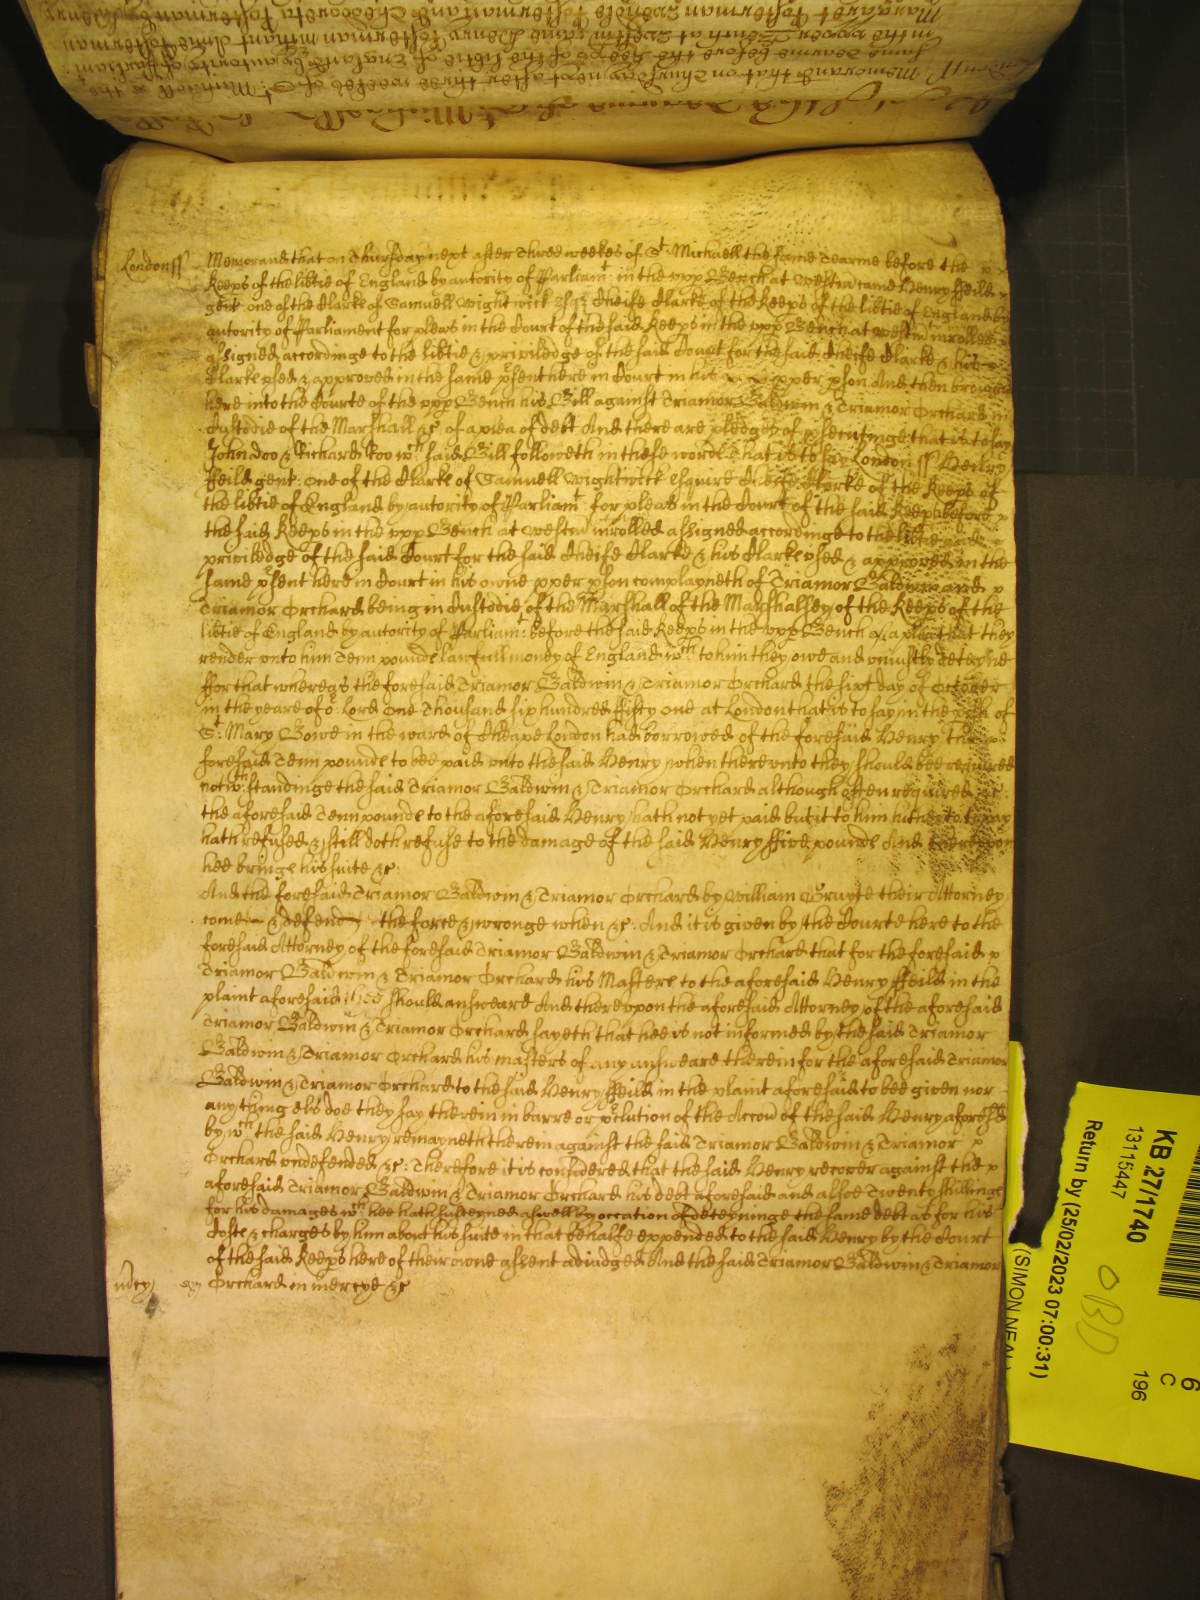 London ss Memorand that on Thursday next after Three weekes of St Michaell the same Tearme before the
Keeps of the libtie of England by autority of Parliamt in the vpp Bench at Westm came Henry ffeild
gent one of the Clarke of Samuell Wightwick Esqr Cheife Clarke of the Keeps of the libtie of England by
autority of Parliament for pleas in the Court of the said Keeps in the vpp Bench at westm inrolled
assigned accordinge to the libtie & priviledge of the said Court for the said Cheife Clarke & his
Clarke vsed & approved in the same psent here in Court in his pper pson And then brought
here into the Courte of the vpp Bench his Bill against Triamor Baldwin & Triamor Orchard in
Custodie of the Marshall &c of a plea of debt And there are pledges of psecutinge that is to say
John doo & Richard Roo wch said Bill followeth in these words that is to say London ss Henry
ffeild gent one of the Clarke of Samuell Wightwick esquire Cheife Clarke of the Keeps of
the libtie of England by autority of Parliamt for pleas in the Court of the said Keeps before
the said Keeps in the vpp Bench at westm inrolled assigned accordinge to the libtie and
priviledge of the said Court for the said Cheife Clarke & his Clarke vsed & approved in the
same psent here in Court in his owne pper pson complayneth of Triamor Baldwin and
Triamor Orchard being in Custodie of the Marshall of the Marshallsey of the Keeps of the
libtie of England by autority of Parliamt before the said Keeps in the vpp Bench of a plea that they
render vnto him Tenn pounde lawfull money of England wch to him they owe and vniustly deteyne
ffor that whereas the foresaid Triamor Baldwin & Triamor Orchard the sixt day of October
in the yeare of or Lord One Thousand six hundred ffifty one at London that is to say in the pish of
St Mary Bowe in the ward of Cheape London had borrowed of the foresaid Henry the
foresaid Tenn pounde to bee paid vnto the said Henry when therevnto they should bee required
notwthstandinge the said Triamor Baldwin & Triamor Orchard although often required &c
the aforesaid Tenn pounde to the aforesaid Henry hath not yet paid but it to him hitherto to pay
hath refused & still doth refuse to the damage of the said Henry ffive pounde And therevpon
hee bringe his suite &c
And the foresaid Triamor Baldwin & Triamor Orchard by William their Attorney
come & defend the force & wronge when &c And it is given by the Courte here to the
foresaid Attorney of the foresaid Triamor Baldwin & Triamor Orchard that for the foresaid
Triamor Baldwin & Triamor Orchard his Masters to the aforesaid Henry ffeild in the
plaint aforesaid hee should answeare And therevpon the aforesaid Attorney of the aforesaid
Triamor Baldwin & Triamor Orchard sayeth that hee is not informed by the said Triamor
Baldwin & Triamor Orchard his masters of any answeare therein for the aforesaid Triamor
Baldwin & Triamor Orchard to the said Henry ffeild in the plaint aforesaid to bee given nor
any thing els doe they say therein in barre or pclution of the Accon of the said Henry aforesd
by wch the said Henry remayneth therein against the said Triamor Baldwin & Triamor
Orchard vndefended &c Therefore it is considered that the said Henry recover against the
aforesaid Triamor Baldwin & Triamor Orchard his debt aforesaid and alsoe Twenty shillinge
for his damages wch hee hath susteyned aswell by occation of deteyninge the same debt as for his
Coste & charges by him about his suite in that behalfe expended to the said Henry by the Court
of the said Keeps here of their owne assent adiudged And the said Triamor Baldwin & Triamor
Orchard in mercye &c
KB 27/1740
13115447
Return by (25/02/2023 07:00:31)
(SIMON NEAL)
OBD
6
C
196